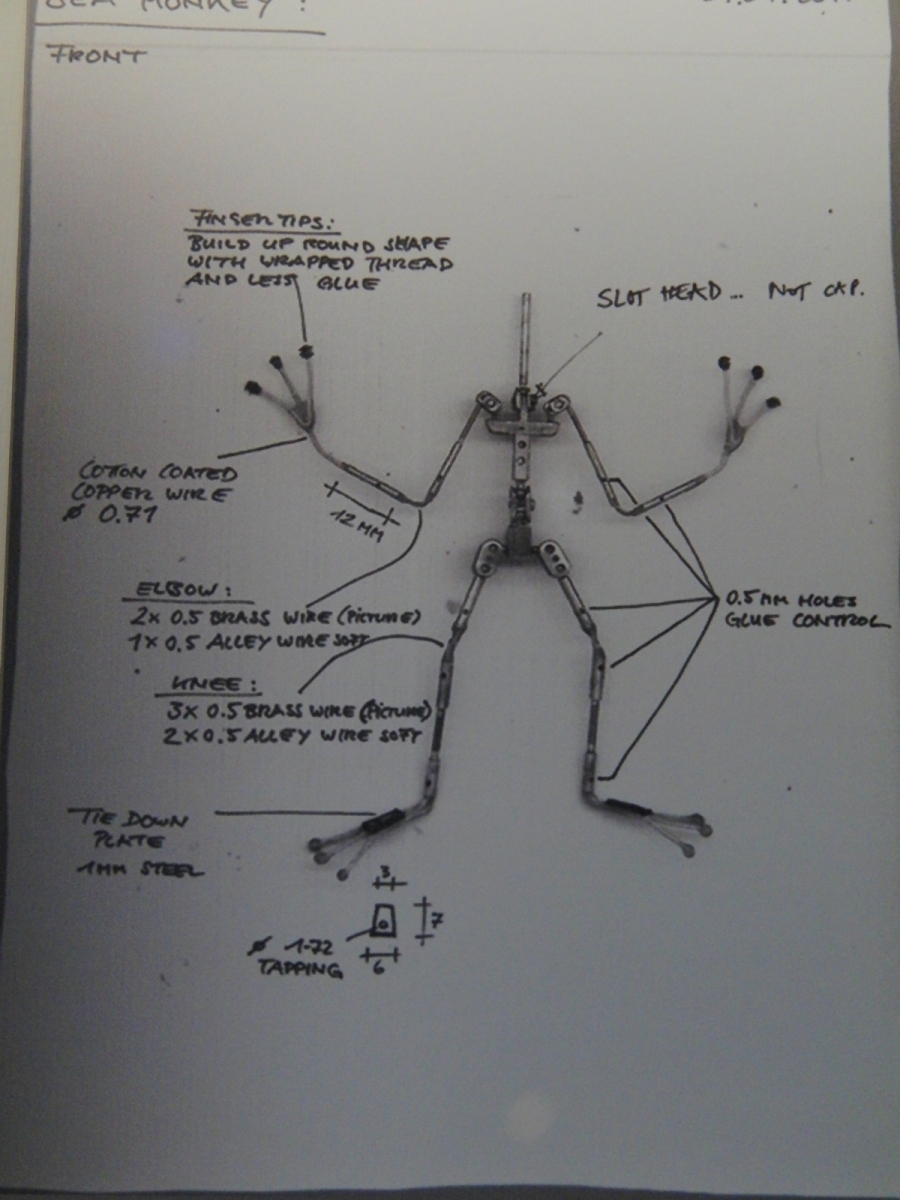 SEA MONKEY:
FRONT
FINGERTIPS:
BUILD UP ROUND SHAPE
WITH WRAPPED THREAD
AND LESS GLUE
SLOT HEAD... NOT CAP.
COTTON COATED
COPPER WIRE
Ø 0.71
12 MM
ELBOW:
2x 0.5 BRASS WIRE (PICTURE)
1x 0.5 ALLEY WIRE SOFT
0.5 MM HOLES
GLUE CONTROL
KNEE:
3x 0.5 BRASS WIRE (PICTURE)
2x 0.5 ALLEY WIRE SOFT
TIE DOWN
PLATE
1MM STEEL
3
7
Ø 1-72
TAPPING
6